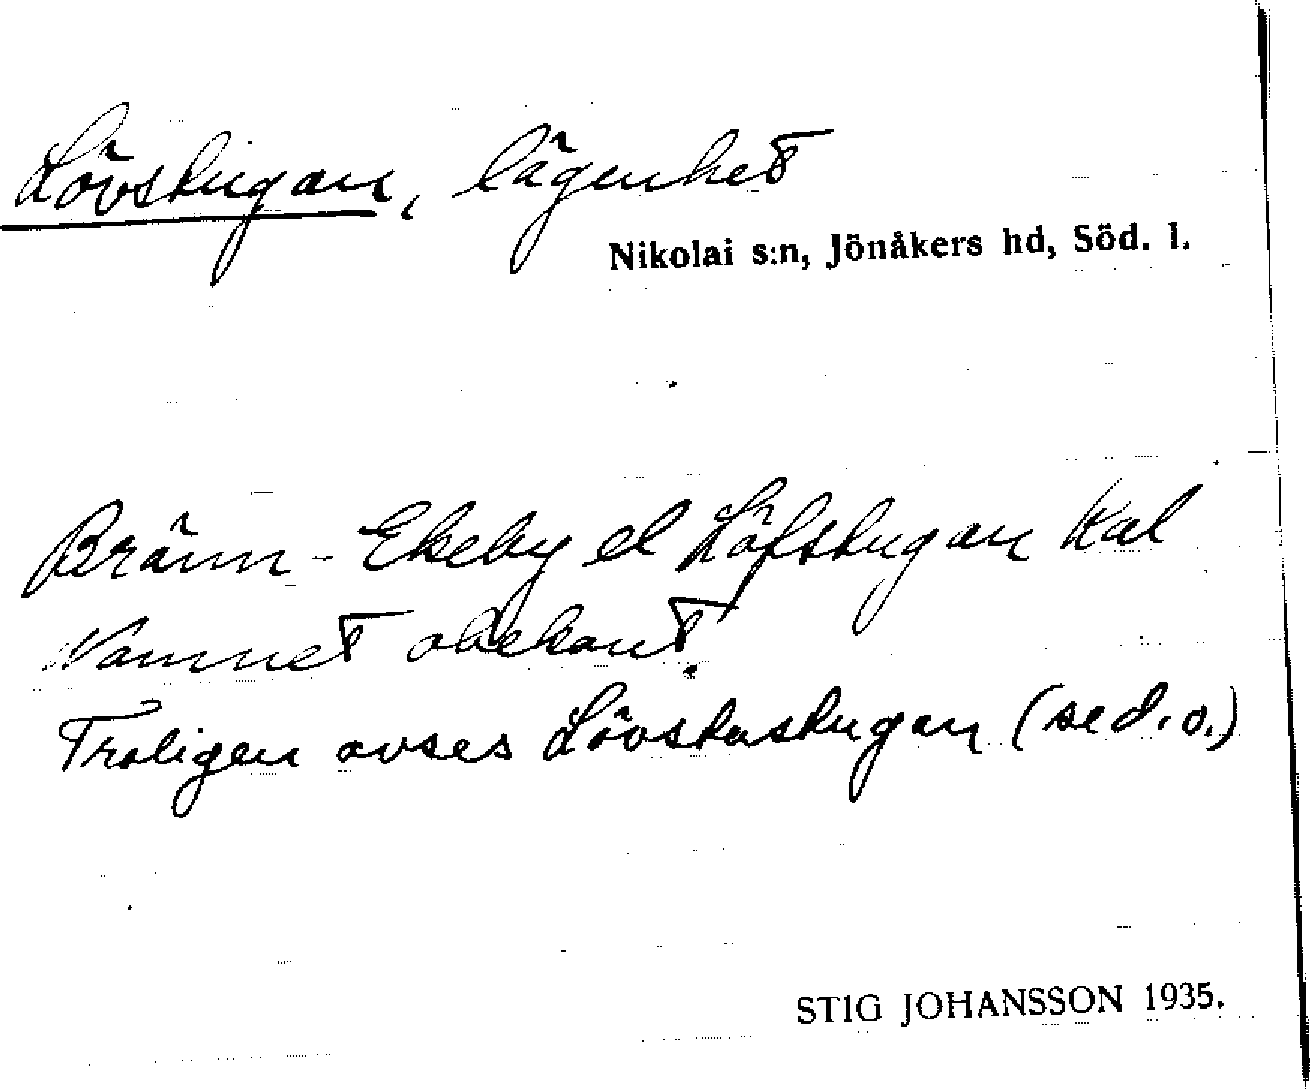 Lövstugan, lägenhet
Nikolai s:n, Jönåkers hd, Söd. l.
Bränn-Ekeby el Löfstugan Kal
Namnet obekant.
Troligen avses Lövstastugan (se d. o.)
STIG JOHANSSON 1935.